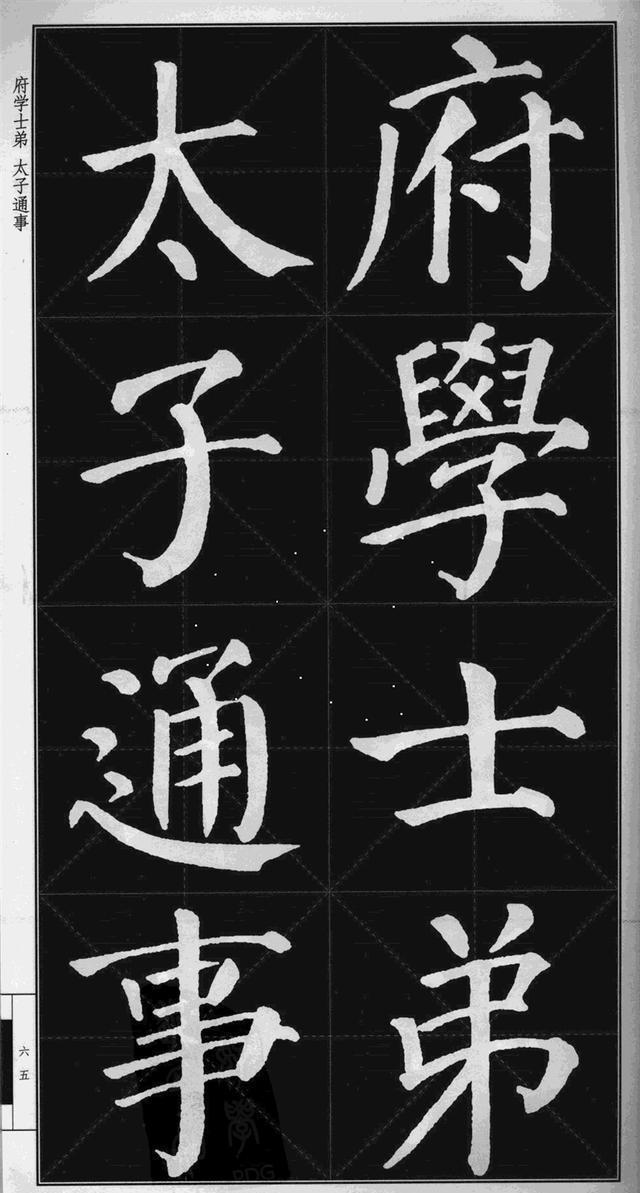 府學士弟
太子通事
府学士弟 太子通事
六五
PDG